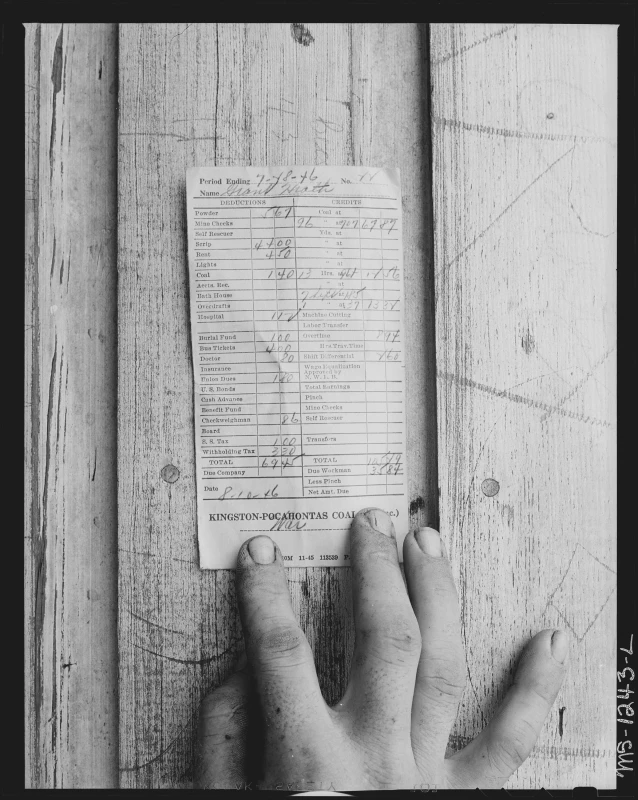 Period Ending 7-28-46 No.
Name Grant Heath
DEDUCTIONS CREDITS
Powder 567 Coal at
Mine Checks 96 " at 707 67 87
Self Rescuer Yds. at
Scrip 44 00 " at
Rent 4 50 " at
Lights " at
Coal 1 40 13 Hrs. at
Aetna Rec. " at
Bath House
Overdrafts
Hospital Machine Cutting
Labor Transfer
Burial Fund 1 00 Overtime
Bus Tickets 4 00 Hrs Trav. Time
Doctor Shift Differential
Insurance Wage Equalization
Approved by
N. W. L. B.
Union Dues
U. S. Bonds Total Earnings
Cash Advance Pluck
Benefit Fund Mine Checks
Checkweighman 86 Self Rescuer
Board
S. S. Tax 1 00 Transfers
Withholding Tax 3 30
TOTAL 69 45 TOTAL
Due Company Due Workman
Less Pluck
Date 8-10-46 Net Amt. Due
KINGSTON-POCAHONTAS COAL
War
0M 11-45 112529
MS-1243-L